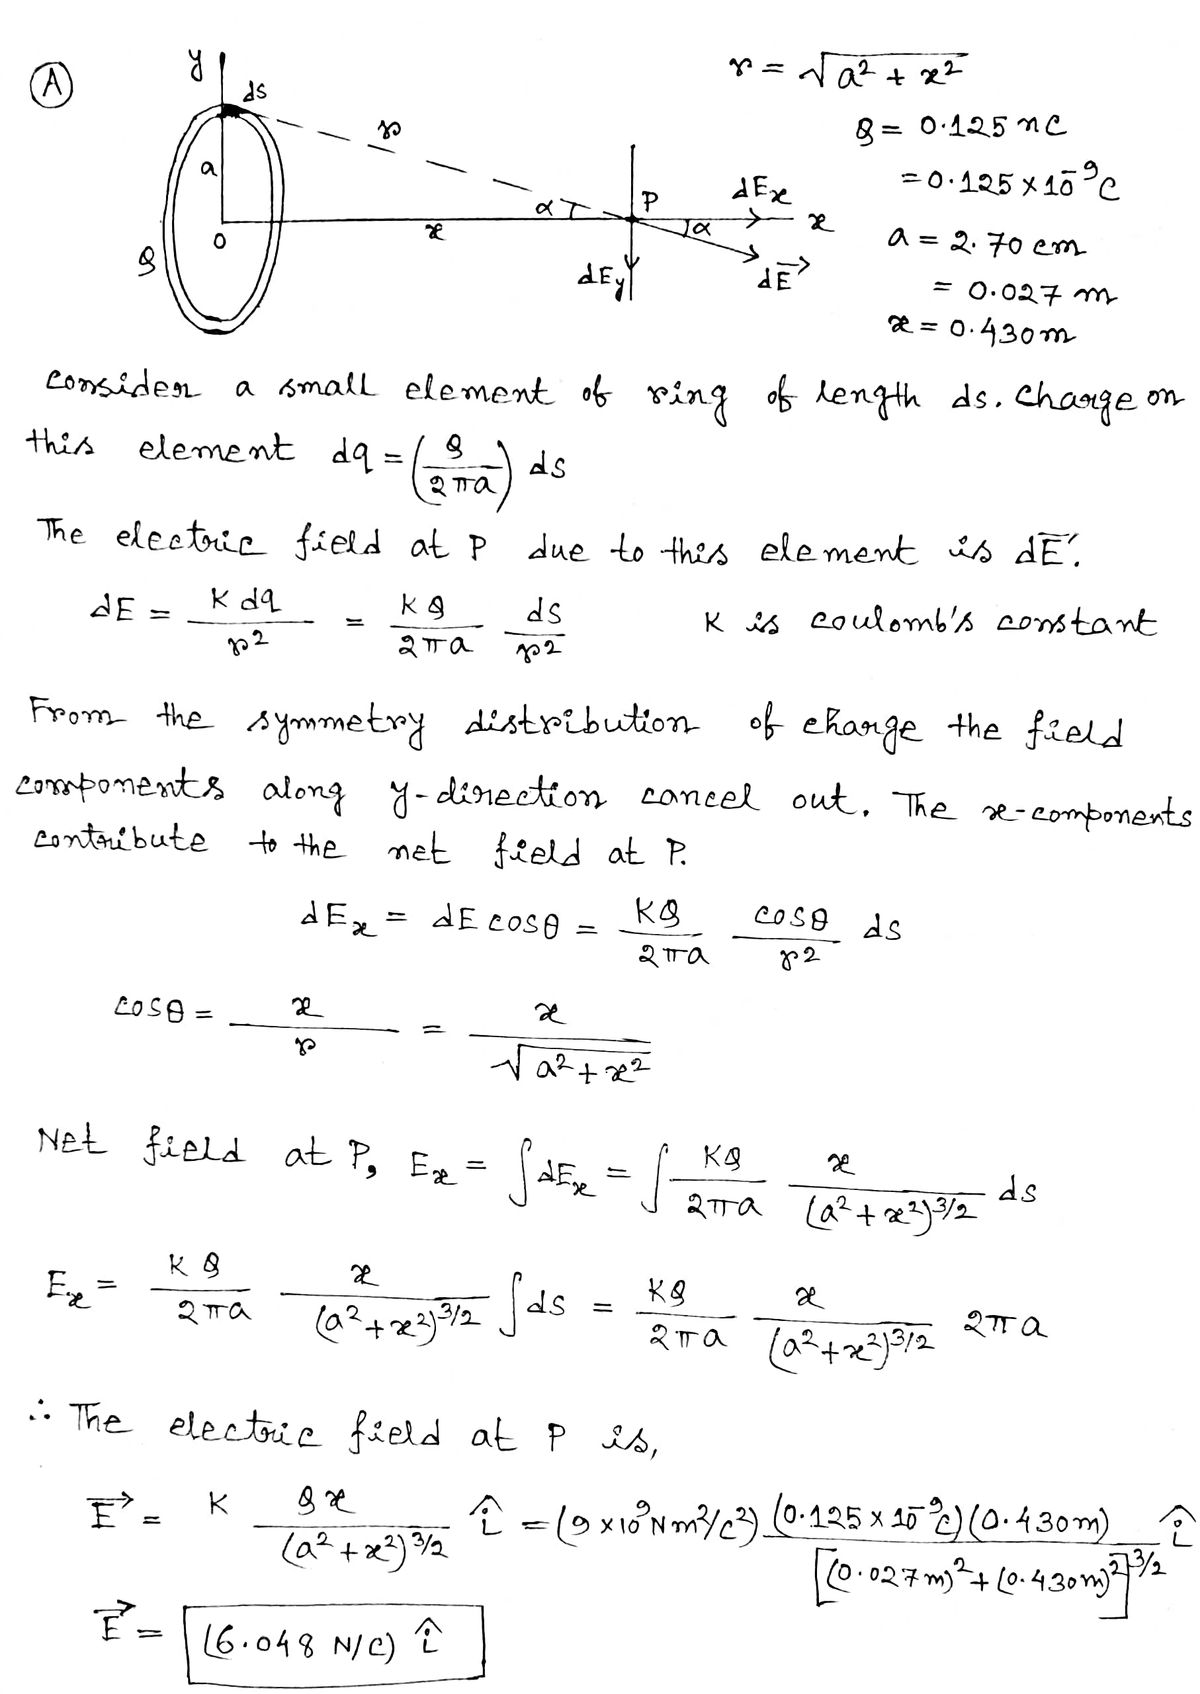 A
y
ds
r
a
O
x
Q
α
P
dEx
α
x
dEy
dE⃗
r = √(a² + x²)
Q = 0.125 nC
= 0.125 × 10⁻⁹ C
a = 2.70 cm
= 0.027 m
x = 0.430 m
Consider a small element of ring of length ds. Charge on
this element dq = (Q/2πa) ds
The electric field at P due to this element is dE⃗.
dE = K dq / r² = KQ/2πa ds/r² K is coulomb's constant
From the symmetry distribution of charge the field
components along y-direction cancel out. The x-components
contribute to the net field at P.
dEx = dE cosθ = KQ/2πa cosθ/r² ds
cosθ = x/r = x/√(a² + x²)
Net field at P, Ex = ∫dEx = ∫ KQ/2πa x/(a² + x²)^3/2 ds
Ex = KQ/2πa x/(a² + x²)^3/2 ∫ds = KQ/2πa x/(a² + x²)^3/2 2πa
∴ The electric field at P is,
E⃗ = K Qx/(a² + x²)^3/2 î = (9 × 10⁹ Nm²/C²) (0.125 × 10⁻⁹ C)(0.430m)/[(0.027m)² + (0.430m)²]^3/2 î
E⃗ = (6.048 N/C) î